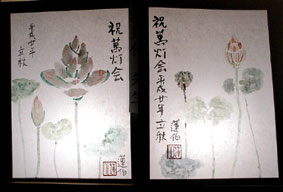 祝萬灯会平成廿年立秋
蓮伯
祝萬灯会
平成廿年
立秋
蓮伯